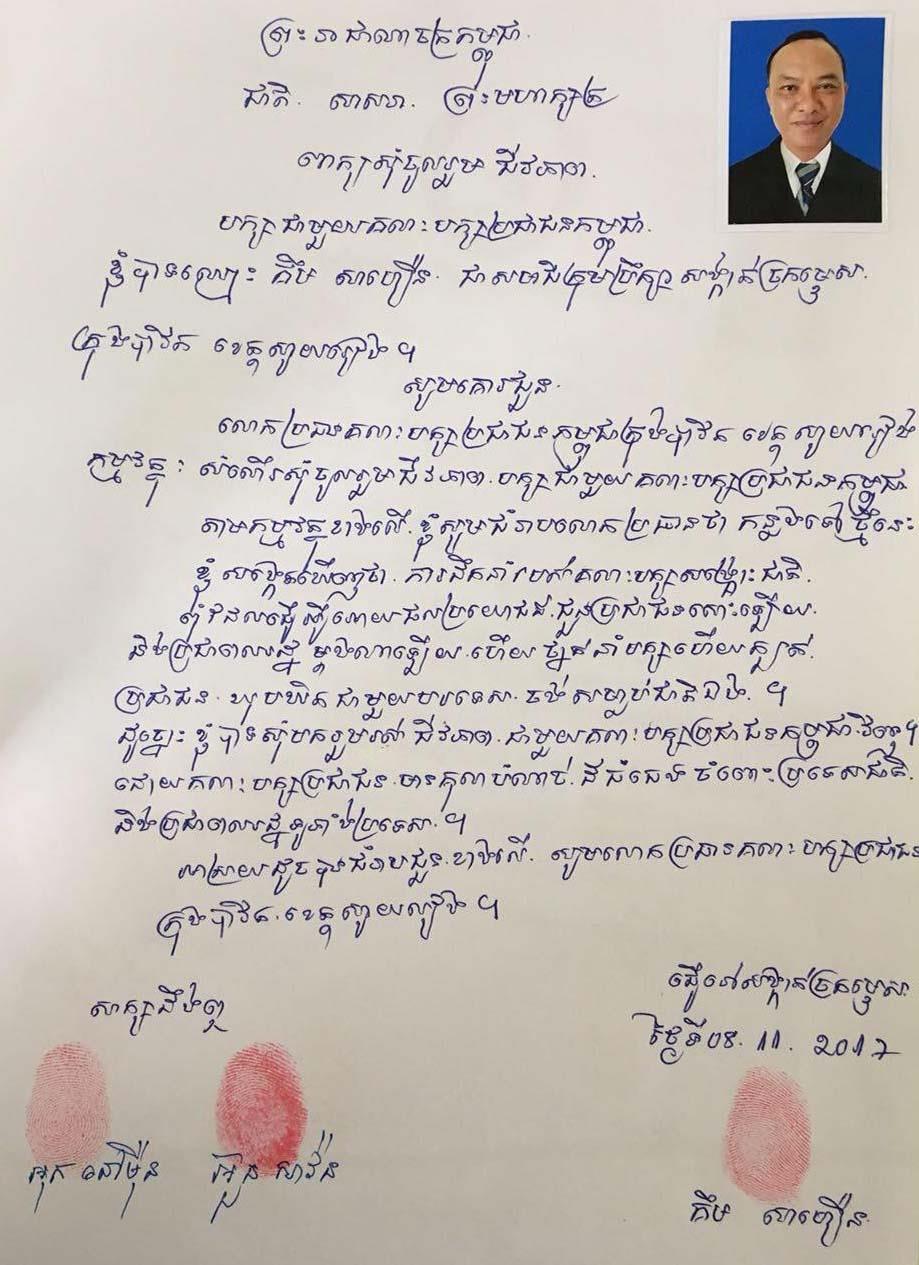 ព្រះរាជាណាចក្រកម្ពុជា
ជាតិ សាសនា ព្រះមហាក្សត្រ
ពាក្យសុំចូលរួម ជីវភាព
បក្សជាមួយគណៈបក្សប្រជាជនកម្ពុជា
ខ្ញុំបាទឈ្មោះ គឹម សាហឿន ជាសមាជិក្រុមប្រឹក្សា សង្កាត់ច្រកម្ទេស
ក្រុងបាវិត ខេត្តស្វាយរៀង ។
សូមគោរពជូន
លោកប្រធានគណៈបក្សប្រជាជនកម្ពុជាក្រុងបាវិត ខេត្តស្វាយរៀង
កម្មវត្ថុ : សំណើរសុំចូលរួមជីវភាព បក្សជាមួយគណៈបក្សប្រជាជនកម្ពុជា
តាមកម្មវត្ថុខាងលើ ខ្ញុំសូមជំរាបលោកប្រធានថា កន្លងទៅថ្មីនេះ
ខ្ញុំសង្កេតឃើញថា ការដឹកនាំរបស់គណៈបក្សសង្គ្រោះជាតិ
ពុំដែលធ្វើអ្វីអោយផលប្រយោជន៍ ជូនប្រជាជនសោះឡើយ
និងប្រជាពលរដ្ឋ ម្តងណាឡើយ ហើយ ថ្នាក់នាំបក្សហើយក្បត់
ប្រជាជន ឃុបឃិតជាមួយបរទេស ចង់សម្លាប់ជាតិឯង ។
ដូច្នោះ ខ្ញុំបាទសុំមករួមរស់ ជីវភាព ជាមួយគណៈបក្សប្រជាជនកម្ពុជាវិញ។
ដោយគណៈបក្សប្រជាជន មានគុណបំណាច់ ដ៏ធំធេង ចំពោះប្រទេសជាតិ
និងប្រជាពលរដ្ឋទូទាំងប្រទេស ។
អាស្រ័យដូចបានជំរាបជូនខាងលើ សូមលោកប្រធានគណៈបក្សប្រជាជន
ក្រុងបាវិត ខេត្តស្វាយរៀង ។
ធ្វើនៅសង្កាត់ច្រកម្ទេស
សាក្សីដឹងឮ
ថ្ងៃទី08. 11. 2017
អ៊ុក នៅម៉ីន
អ៊ួន សាវ៉ន
គឹម សាហឿន